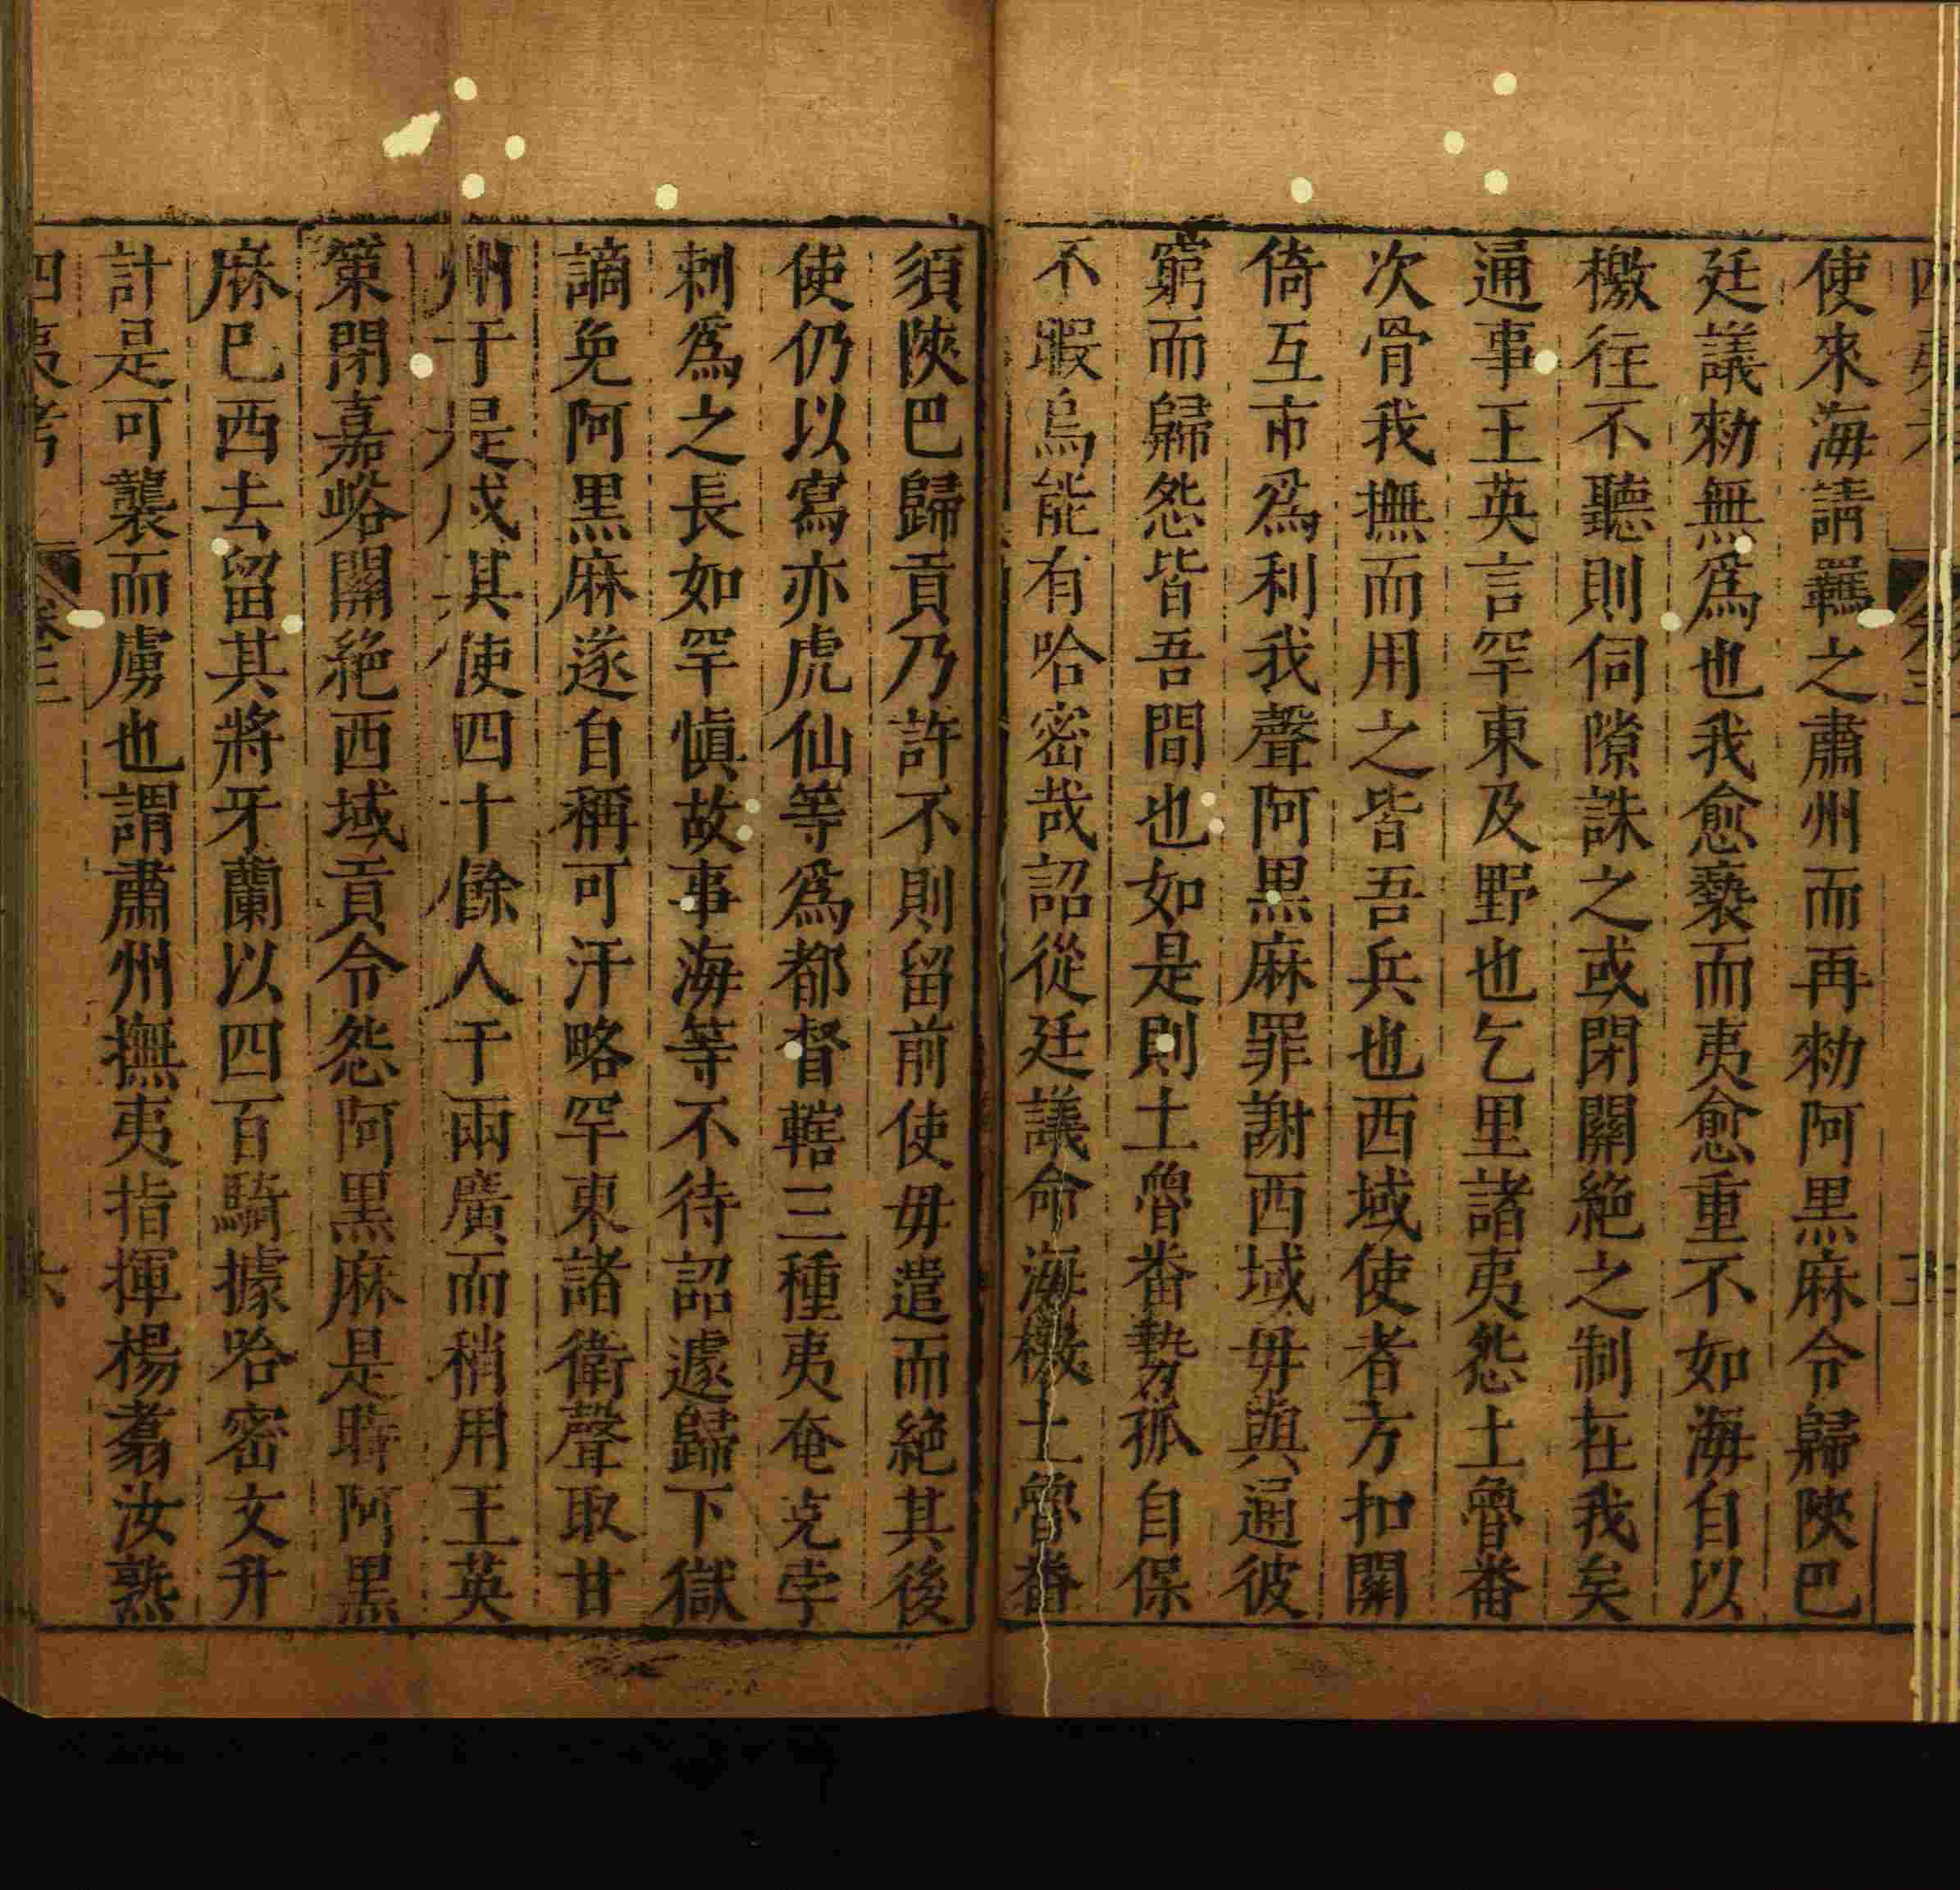 使來海請羈之肅州而再勑阿黑麻令歸陝巴
廷議勑無爲也我愈褻而夷愈重不如海自以
檄往不聽則伺隙誅之或閉關絕之制在我矣
通事王英言罕東及野也乞里諸夷怨土魯番
次骨我撫而用之皆吾兵也西域使者方扣關
倚互市爲利我聲阿黑麻罪謝西域毋與通彼
窮而歸怨皆吾間也如是則土魯番勢孤自保
不暇烏能有哈密哉詔從廷議命海檄土魯番
須陝巴歸貢乃許不則留前使毋遣而絕其後
使仍以寫亦虎仙等爲都督轄三種夷奄克孛
剌爲之長如罕慎故事海等不待詔遽歸下獄
謫免阿黑麻遂自稱可汗略罕東諸衛聲取甘
州于是戍其使四十餘人于兩廣而稍用王英
策閉嘉峪關絕西域貢令怨阿黑麻是時阿黑
麻巳西去留其將牙蘭以四百騎據哈密文升
計是可襲而虜也謂肅州撫夷指揮楊翥汝熟
四夷考 卷三 六